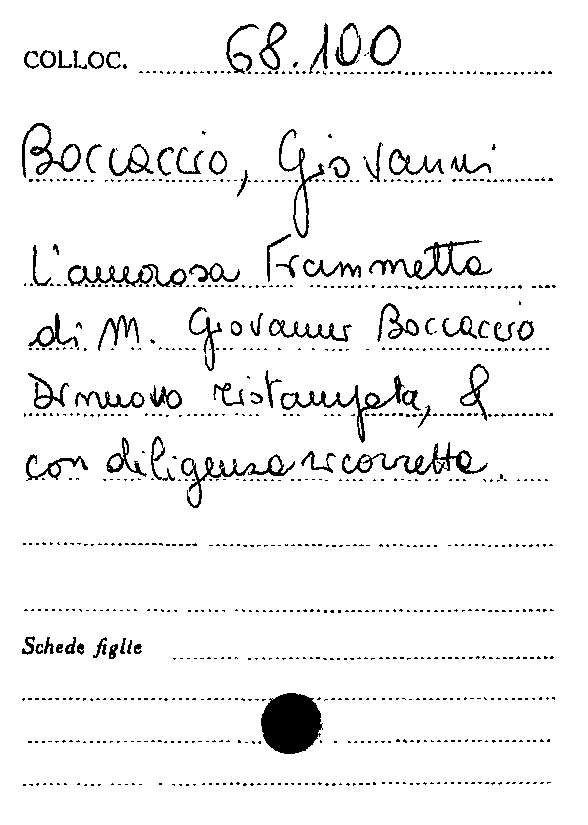 COLLOC. 68.100
Boccaccio, Giovanni
L'amorosa Fiammetta
di M. Giovanni Boccaccio
Di nuovo ristampata, &
con diligenza ricorretta.
Schede figlie